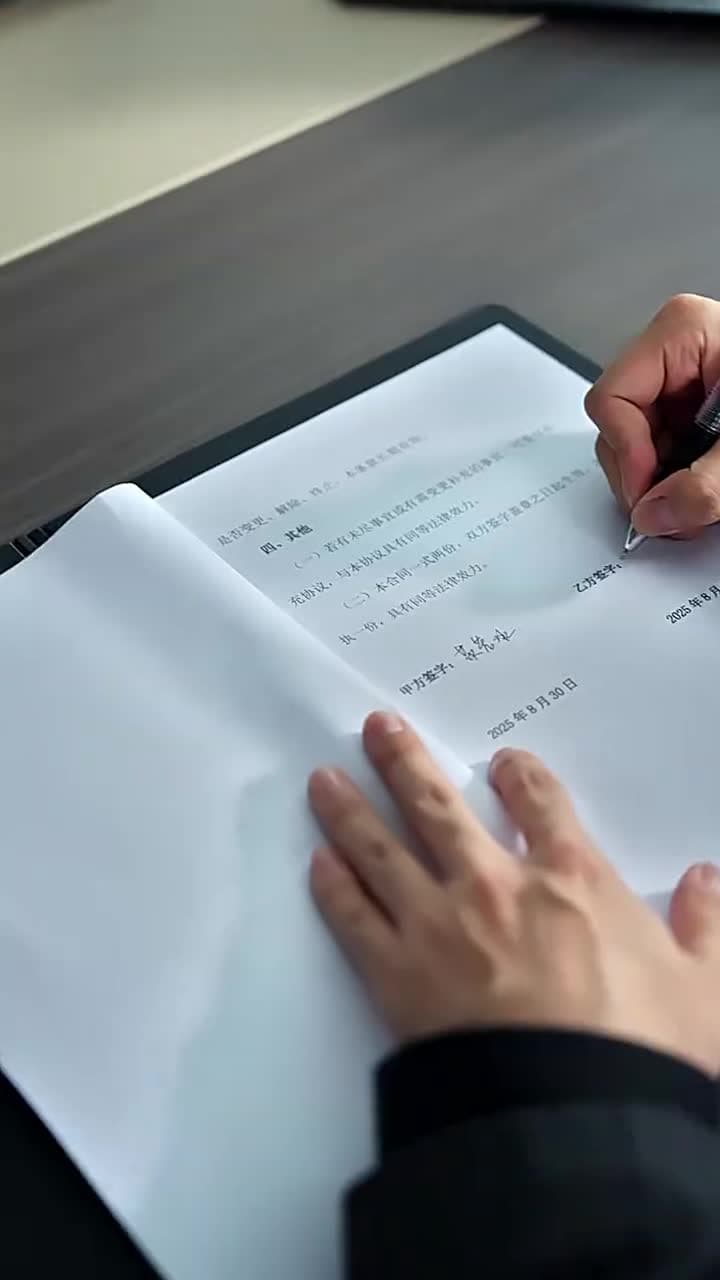 是否变更、解除、终止,本条款长期有效。
四、其他
(一)若有未尽事宜或有需变更补充的事项,
充协议,与本协议具有同等法律效力。
(二)本合同一式两份,双方签字盖章之日起生效,
执一份,具有同等法律效力。
甲方签字:
乙方签字:
2025 年 8 月 30 日
2025 年 8 月